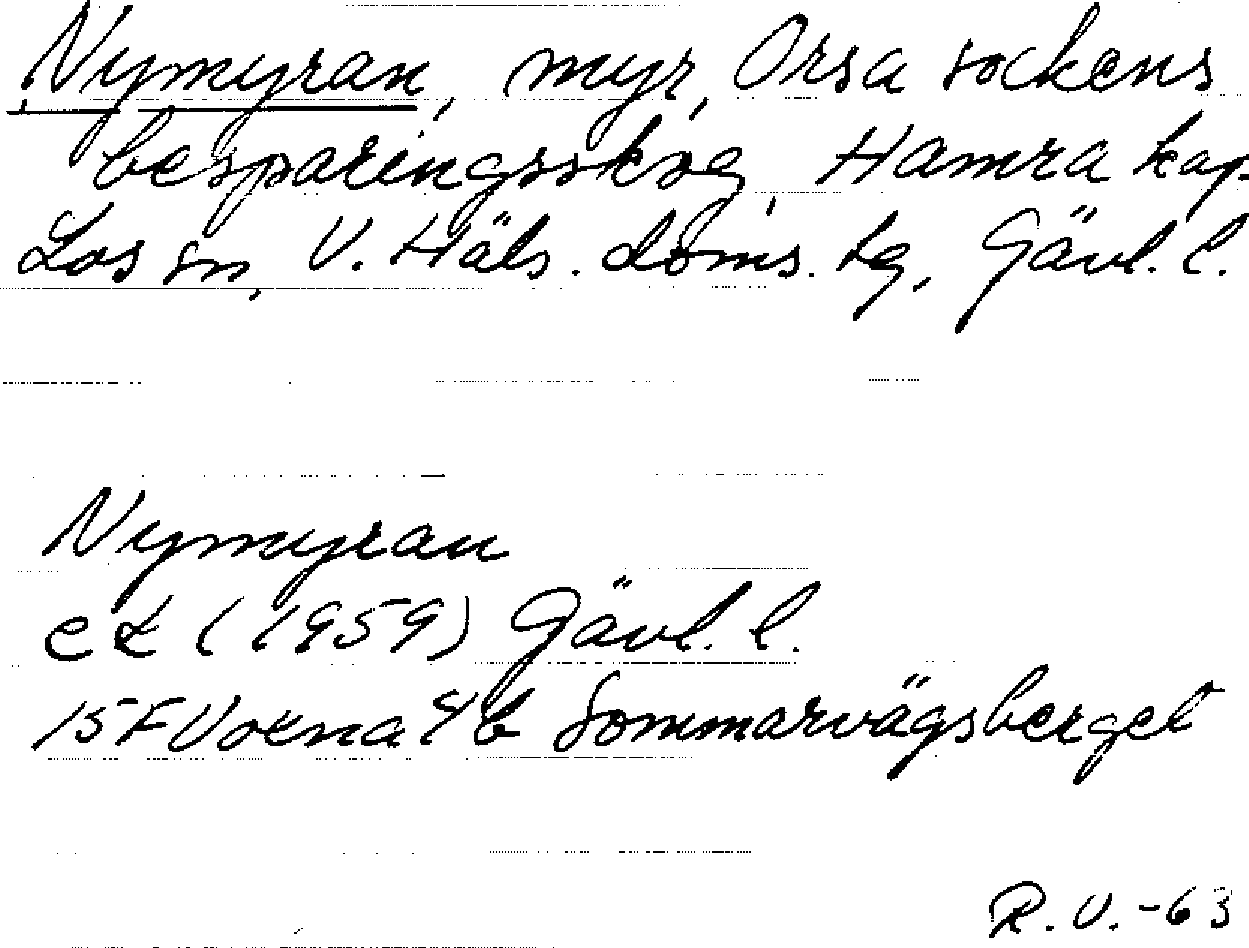 Nymyran, myr, Orsa sockens
besparingsskog, Hamra kap.
Los sn, V. Häls. doms. tg, Gävl. l.
Nymyran
ek (1959) Gävl. l.
15F Voxna 9b Sommarvägsberget
R.V.-63